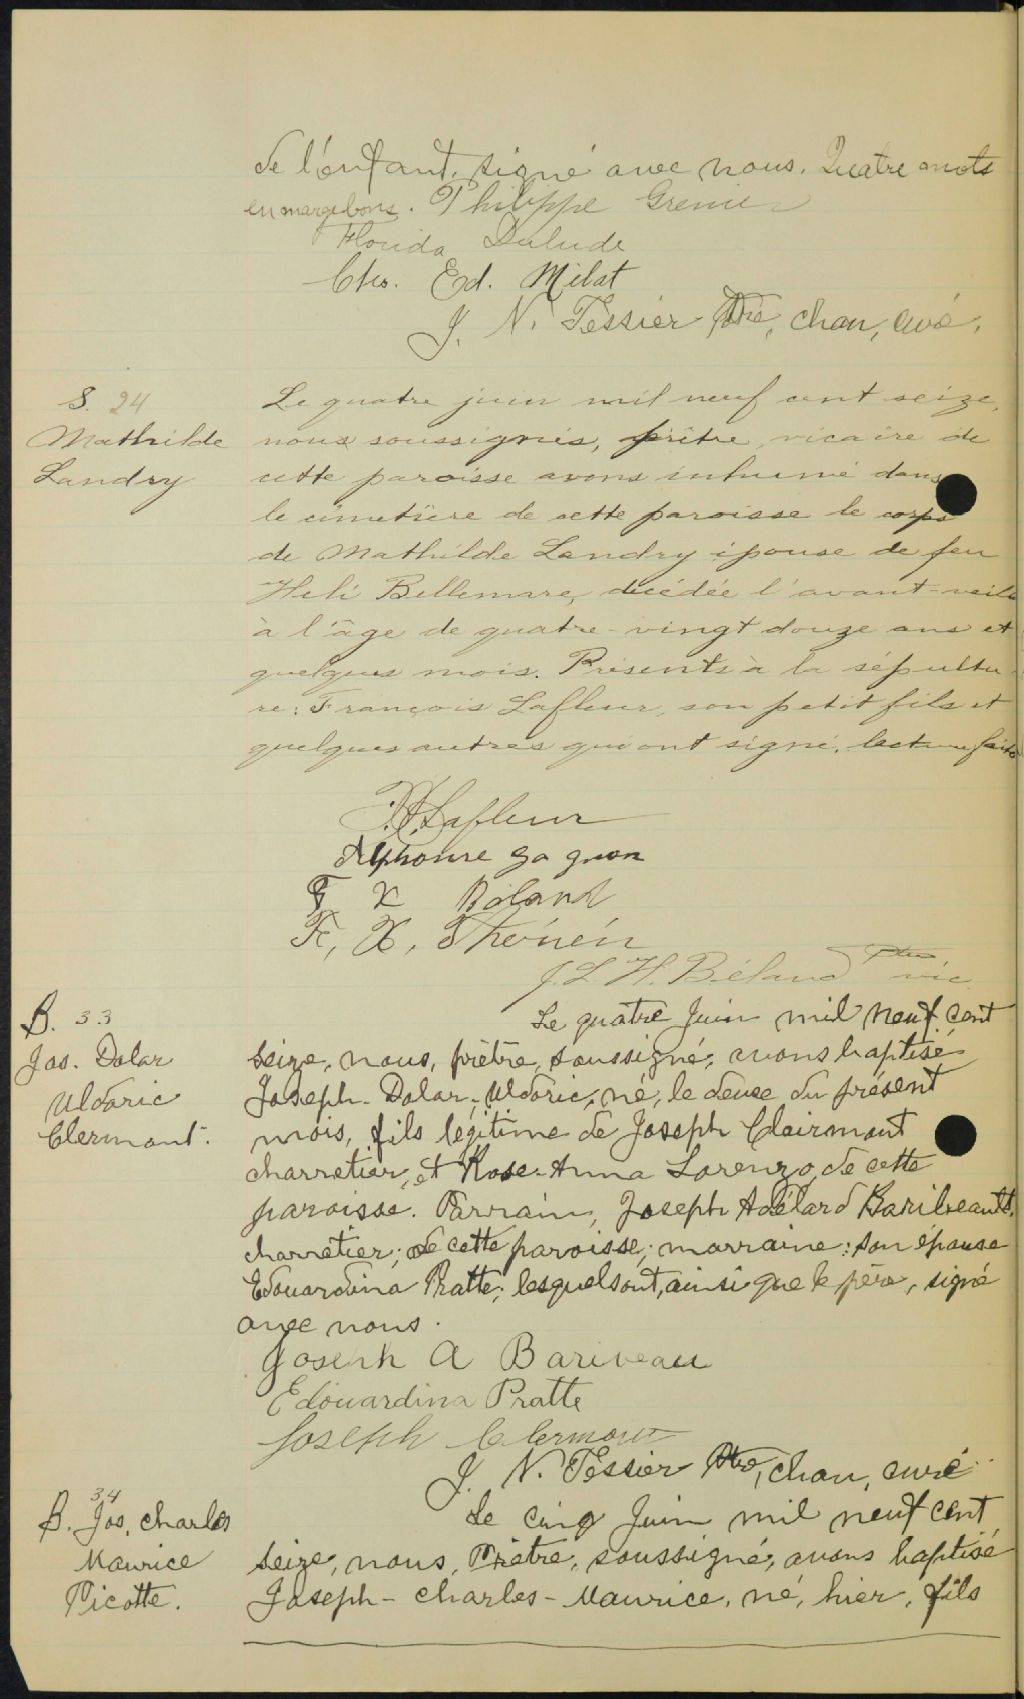 de l'enfant, signé avec nous. Quatre mots
en marge bons. Philippe Grenier
Florida Dulude
Chs. Ed. Milot
J. N. Tessier Ptre, chan, curé.
S. 24
Mathilde
Landry
Le quatre juin mil neuf cent seize,
nous soussignés, prêtre, vicaire de
cette paroisse avons inhumé dans
le cimetière de cette paroisse le corps
de Mathilde Landry épouse de feu
Heli Bellemare, décédée l'avant-veille
à l'âge de quatre-vingt douze ans et
quelques mois. Présents à la sépultu-
re: François Lafleur, son petit fils et
quelques autres qui ont signé, lecture faite
Lafleur
Alphonse Gagnon
F X Béland
F, X,
J. L. H. Béland Ptre vic
B. 33
Jos. Dolar
Uldoric
Clermont.
Le quatre Juin mil neuf cent
seize, nous, prêtre, soussigné, avons baptisé
Joseph-Dolar-Uldoric, né, le deux du présent
mois, fils légitime de Joseph Clairmont
charretier, et Rose-Anna Lorenzo, de cette
paroisse. Parrain, Joseph Adélard Baribeault,
charretier, de cette paroisse; marraine: son épouse
Edouardina Pratte; lesquels ont, ainsi que le père, signé
avec nous.
Joseph A Bariveau
Edouardina Pratte
Joseph Clermont
J. N. Tessier Ptre, chan, curé
B. 34 Jos, Charles
Maurice
Picotte.
Le cinq Juin mil neuf cent
seize, nous, Prêtre, soussigné, avons baptisé
Joseph-Charles-Maurice, né, hier, fils